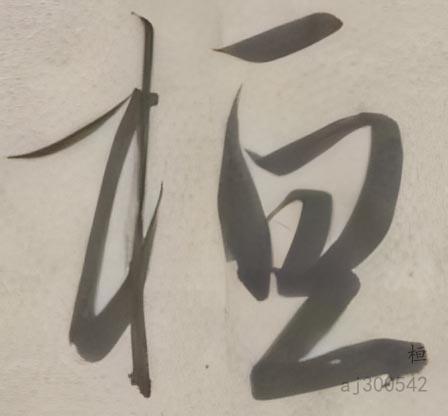 桓
桓
aj300542